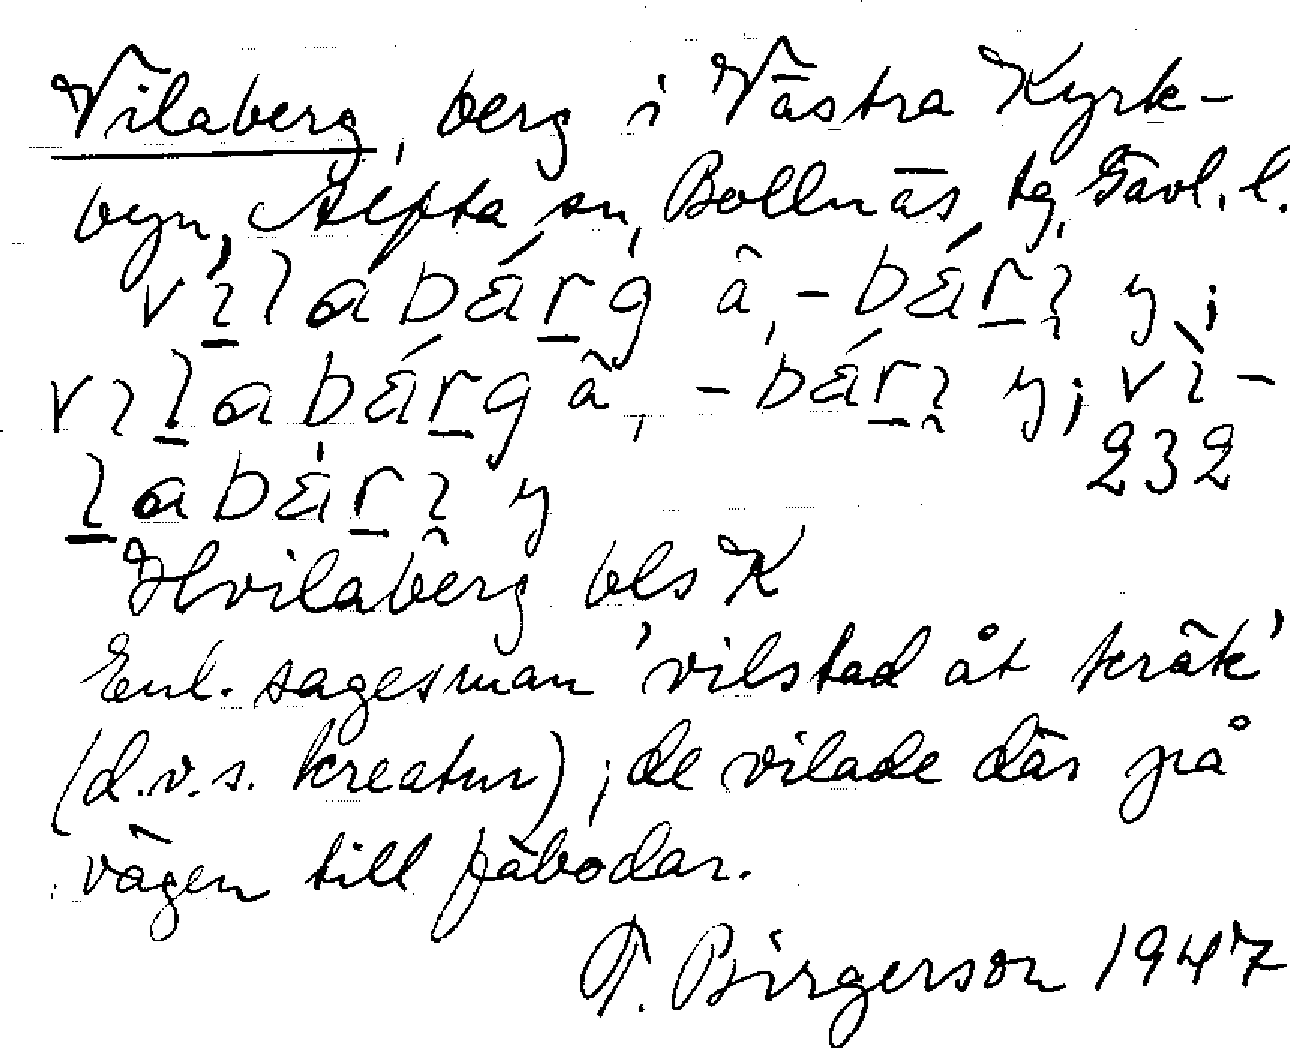 Vilaberg, berg i Västra Kyrk-
byn, Alfta sn, Bollnäs tg, Gävl. l.
vìlabárg ä, -bárı̯ y;
vılabárg ä, -bárı̯ y; vì-
232
labárı̯ y
Hvilaberg bls K
Enl. sagesman 'vilstad åt kräk'
(d.v.s. kreatur); de vilade där på
vägen till fäbodar.
T. Birgerson 1947